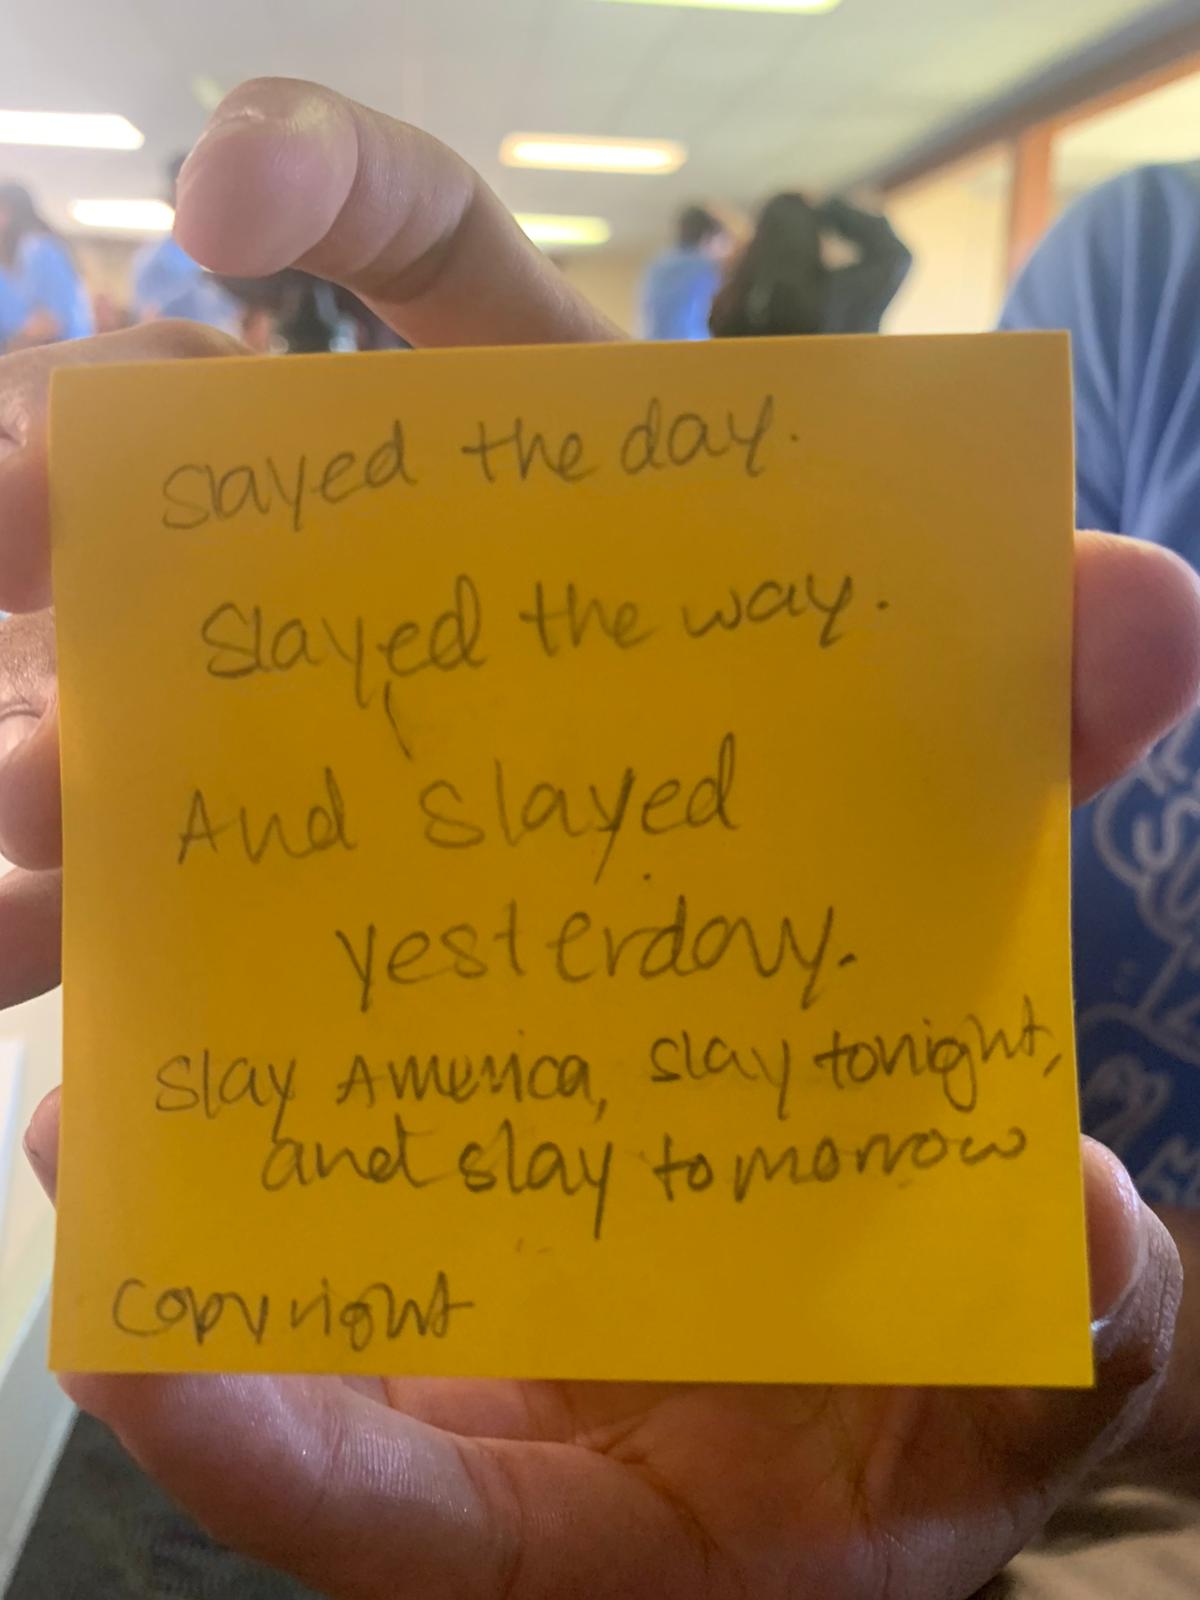 Slayed the day.
Slayed the way.
And slayed
yesterday.
Slay America, slay tonight,
and slay tomorrow
Copyright